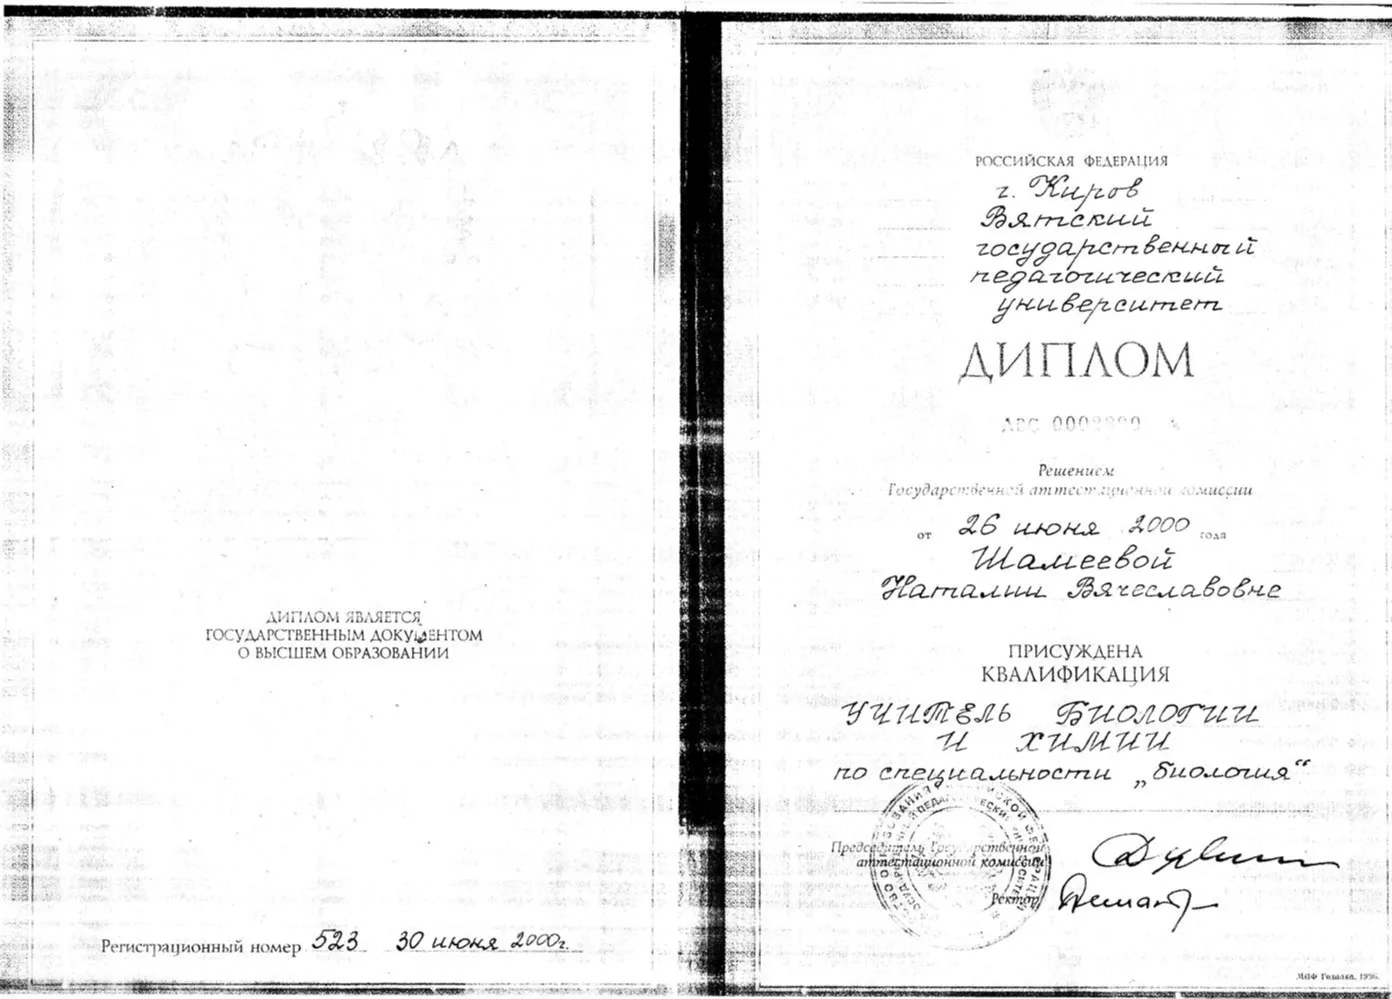 ДИПЛОМ ЯВЛЯЕТСЯ
ГОСУДАРСТВЕННЫМ ДОКУМЕНТОМ
О ВЫСШЕМ ОБРАЗОВАНИИ
Регистрационный номер 523 30 июня 2000г.
РОССИЙСКАЯ ФЕДЕРАЦИЯ
г. Киров
Вятский
государственный
педагогический
университет
ДИПЛОМ
Решением
Государственной аттестационной комиссии
от 26 июня 2000 года
Шамеевой
Наталии Вячеславовне
ПРИСУЖДЕНА
КВАЛИФИКАЦИЯ
УЧИТЕЛЬ БИОЛОГИИ
И ХИМИИ
по специальности „биология“
Председатель Государственной
аттестационной комиссии
Ректор